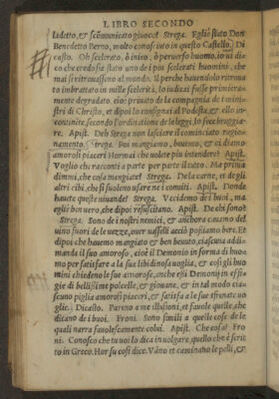 LIBRO SECONDO
ladetto, et scōmunicato giuoco? Strega. Egli è stato Don
Benedetto Berno, molto conosciuto in questo Castello. Di
casto. Oh scelerato, ò iniquo, ò perverso huomo, io vi di
co che credo sia stato uno de i piu scelerati huomini, che
mai si ritrovassero al mondo. Il perche havendolo ritrova
to imbrattato in mille scelerità, lo iudicai fusse primiera
mente degradato, cioè privato de la compagnia de i mini
stri di Christo, et dipoi lo consignai al Podestà, et
secondo l'ordinatione de le leggi lo fece brugguia
re. Apist. Deh Strega non lasciare il cominciato ragio
namento. Strega. Poi mangiamo, beuemo, et vi diamo
amorosi piaceri Hor mai che volete piu intendere? Apist.
Voglio che racconti a parte per parte il tutto. Ma prima
dimmi, che cosa mangiate? Strega. De la carne, et de gli
altri cibi, che si sogliono usare ne i conviti. Apist. Donde
haute queste vivande? Strega. Vccidemo de i buoi, ma
egli è ben vero, che dipoi resuscitano. Apist. De chi sono?
Strega. Sono de i nostri nemici, et anchora cavamo del
vino fuori de le vezze, over vasselli acciò possiamo bere. Et
dipoi che havemo mangiato et ben beuuto, ciascuna addi-
manda il suo amoroso, cioè il Demonio in forma di huo
mo per satisfare a la sua libidinosa voglia, et così gli huo
mini chiedono le sue amorose, anche essi Demonij in effi
gie di bellissime polcelle, et giovane, et in tal modo cia
scuno piglia amorosi piaceri, et satisfa a le sue sfrenate vo
glie. Dicasto. Pareno a me illusioni, et favole quelle, che
dicano de i buoi. Froni. Sono simili a quelle cose de le
quali narra favolescamente colui. Apist. Che cosa? Fro
ni. Conosco che tu voi lo dica in vulgare, quello che è scrit
to in Greco. Hor su così dice. Vano et caminavano le pelli, et